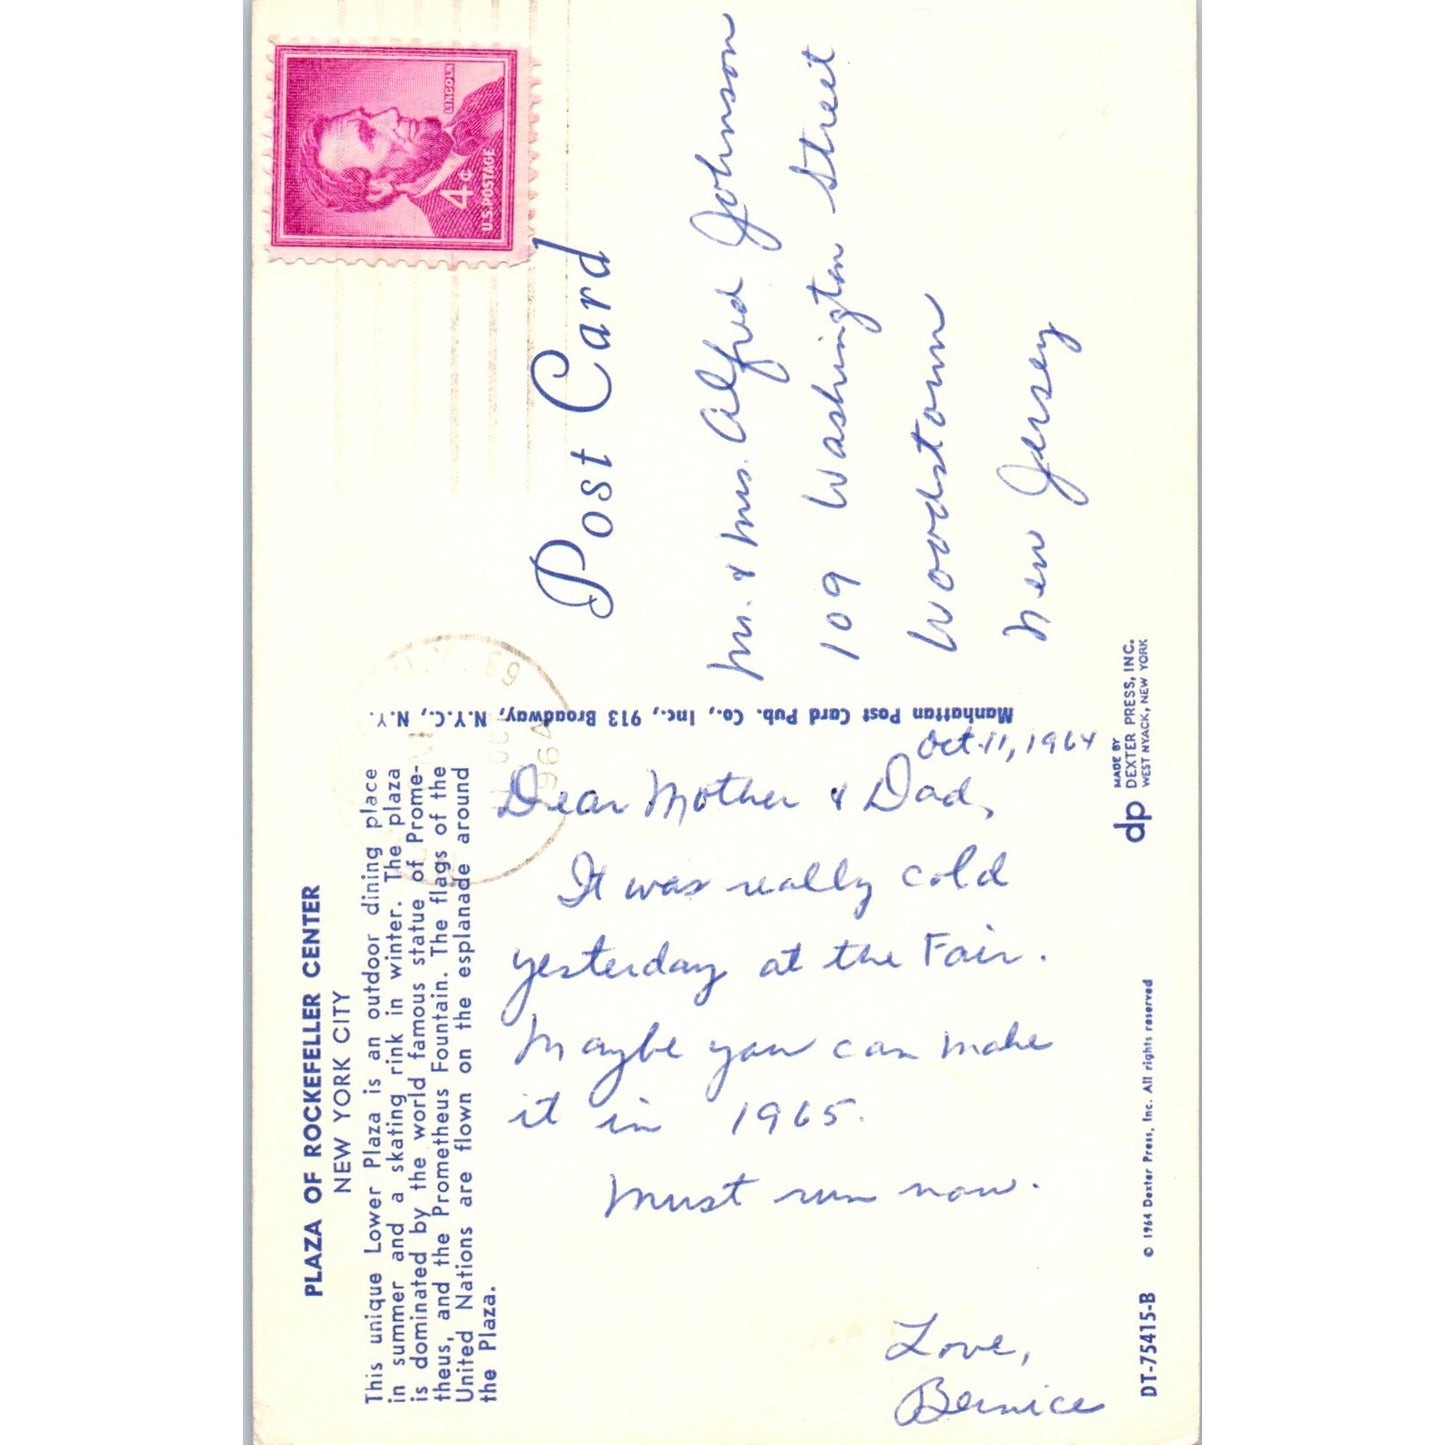 PLAZA OF ROCKEFELLER CENTER
NEW YORK CITY
This unique Lower Plaza is an outdoor dining place
in summer and a skating rink in winter. The plaza
is dominated by the world famous statue of Prome-
theus, and the Prometheus Fountain. The flags of the
United Nations are flown on the esplanade around
the Plaza.
Oct. 11, 1964
Dear Mother & Dad,
It was really cold
yesterday at the Fair.
Maybe you can make
it in 1965.
Must run now.
Love,
Bernice
Manhattan Post Card Pub. Co., Inc., 913 Broadway, N.Y.C., N.Y.
Post Card
LINCOLN
4¢
U.S. POSTAGE
OCT
1964
Mr. & Mrs. Alfred Johnson
109 Washington Street
Woodstown
New Jersey
DT-75415-B
© 1964 Dexter Press, Inc. All rights reserved
dp
MADE BY
DEXTER PRESS, INC.
WEST NYACK, NEW YORK